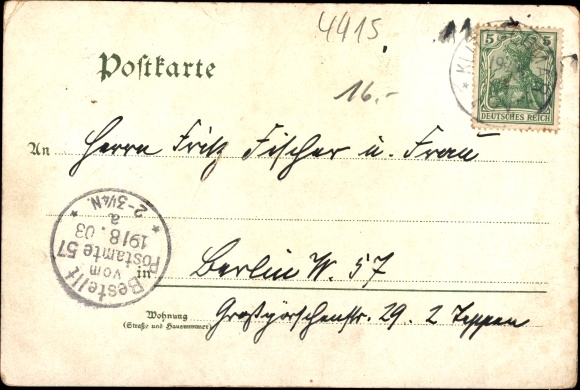 4415
Postkarte
16.-
5 5
DEUTSCHES REICH
An Herrn Fritz Fischer u. Frau
Bestellt
vom
Postamte 57
19/8.03
a
2-3¼N.
in Berlin W. 57
Wohnung
(Straße und Hausnummer)
Großgörschenstr. 29. 2 Treppen